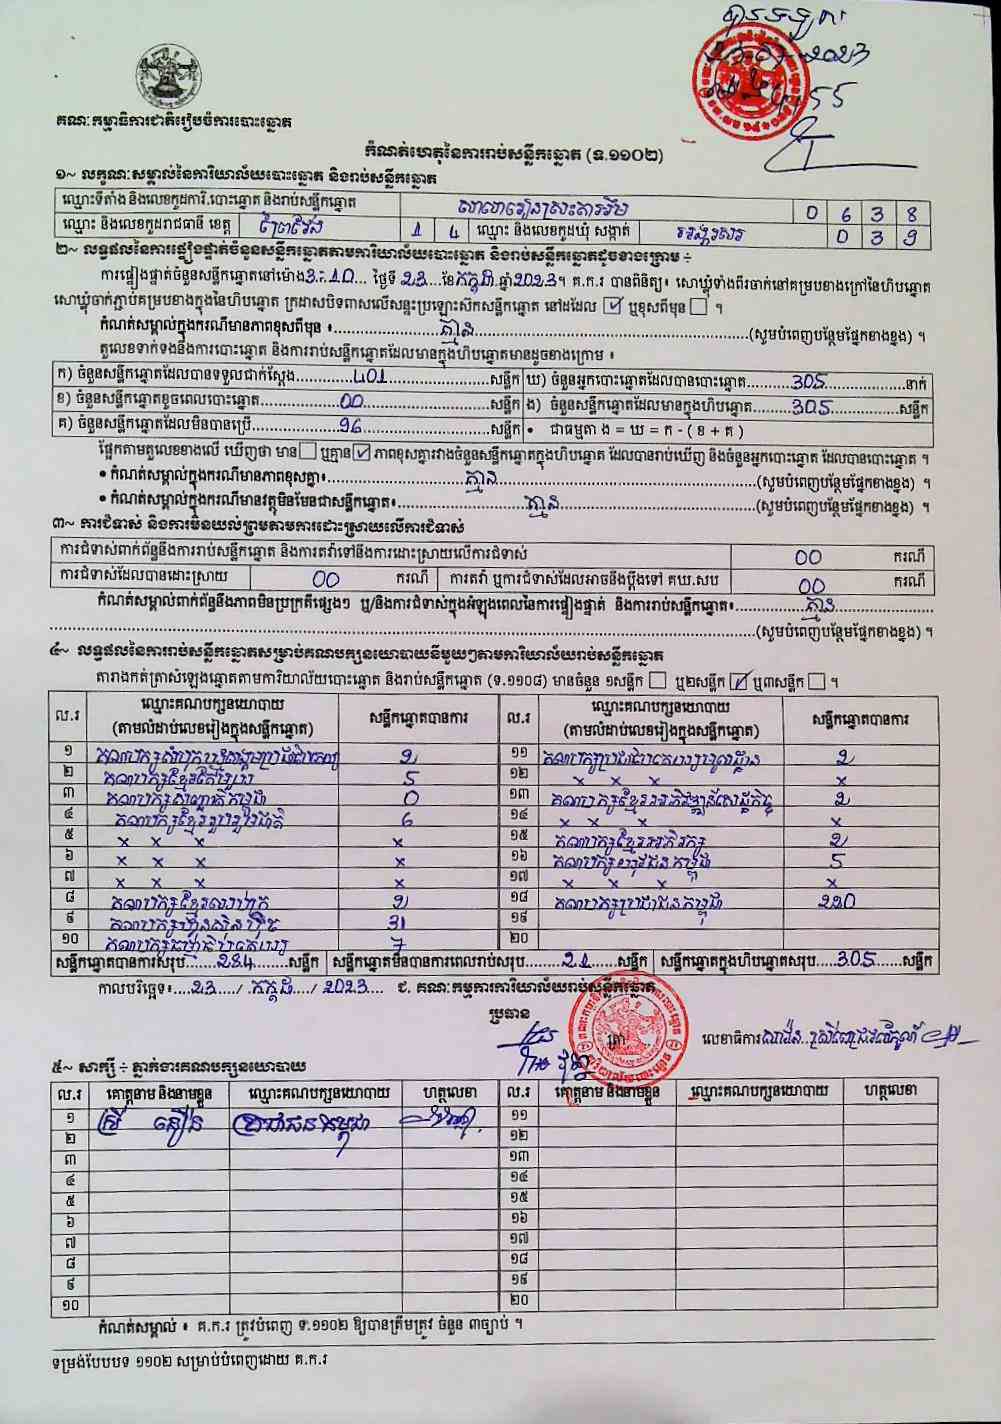 គណៈកម្មាធិការជាតិរៀបចំការបោះឆ្នោត
កំណត់ហេតុនៃការរាប់សន្លឹកឆ្នោត (ទ.១១០២)
១~ លក្ខណៈសម្គាល់នៃការិយាល័យបោះឆ្នោត និងរាប់សន្លឹកឆ្នោត
ឈ្មោះទីតាំង និងលេខកូដការិ.បោះឆ្នោត និងរាប់សន្លឹកឆ្នោត 0 6 3 8
ឈ្មោះ និងលេខកូដរាជធានី ខេត្ត ព្រៃវែង 1 4 ឈ្មោះ និងលេខកូដឃុំ សង្កាត់ 0 3 9
២~ លទ្ធផលនៃការផ្ទៀងផ្ទាត់ចំនួនសន្លឹកឆ្នោតតាមការិយាល័យបោះឆ្នោត និងរាប់សន្លឹកឆ្នោតដូចខាងក្រោម ÷
ការផ្ទៀងផ្ទាត់ចំនួនសន្លឹកឆ្នោតនៅម៉ោង 3:10 ថ្ងៃទី 23 ខែ កក្កដា ឆ្នាំ 2023។ គ.ក.រ បានពិនិត្យ៖ សោឃ្លុំទាំងពីរចាក់នៅគម្របខាងក្រៅនៃហិបឆ្នោត
សោឃ្លុំចាក់ភ្ជាប់គម្របខាងក្នុងនៃហិបឆ្នោត ក្រដាសបិទពាសលើសន្ទះប្រឡោះស៊កសន្លឹកឆ្នោត នៅដដែល ☑ ឬខុសពីមុន ☐ ។
កំណត់សម្គាល់ក្នុងករណីមានភាពខុសពីមុន ៖ គ្មាន (សូមបំពេញបន្ថែមផ្នែកខាងខ្នង) ។
តួលេខទាក់ទងនឹងការបោះឆ្នោត និងការរាប់សន្លឹកឆ្នោតដែលមានក្នុងហិបឆ្នោតមានដូចខាងក្រោម ៖
ក) ចំនួនសន្លឹកឆ្នោតដែលបានទទួលជាក់ស្តែង 401 សន្លឹក ឃ) ចំនួនអ្នកបោះឆ្នោតដែលបានបោះឆ្នោត 305 នាក់
ខ) ចំនួនសន្លឹកឆ្នោតខូចពេលបោះឆ្នោត 00 សន្លឹក ង) ចំនួនសន្លឹកឆ្នោតដែលមានក្នុងហិបឆ្នោត 305 សន្លឹក
គ) ចំនួនសន្លឹកឆ្នោតដែលមិនបានប្រើ 96 សន្លឹក • ជាធម្មតា ង = ឃ = ក - ( ខ + គ )
ផ្អែកតាមតួលេខខាងលើ ឃើញថា មាន ☐ ឬគ្មាន ☑ ភាពខុសគ្នារវាងចំនួនសន្លឹកឆ្នោតក្នុងហិបឆ្នោត ដែលបានរាប់ឃើញ និងចំនួនអ្នកបោះឆ្នោត ដែលបានបោះឆ្នោត ។
• កំណត់សម្គាល់ក្នុងករណីមានភាពខុសគ្នា៖ គ្មាន (សូមបំពេញបន្ថែមផ្នែកខាងខ្នង) ។
• កំណត់សម្គាល់ក្នុងករណីមានវត្ថុមិនមែនជាសន្លឹកឆ្នោត៖ គ្មាន (សូមបំពេញបន្ថែមផ្នែកខាងខ្នង) ។
៣~ ការជំទាស់ និងការមិនយល់ព្រមតាមការដោះស្រាយលើការជំទាស់
ការជំទាស់ពាក់ព័ន្ធនឹងការរាប់សន្លឹកឆ្នោត និងការតវ៉ាទៅនឹងការដោះស្រាយលើការជំទាស់ 00 ករណី
ការជំទាស់ដែលបានដោះស្រាយ 00 ករណី ការតវ៉ា ឬការជំទាស់ដែលអាចនឹងប្តឹងទៅ គឃ.សប 00 ករណី
កំណត់សម្គាល់ពាក់ព័ន្ធនឹងភាពមិនប្រក្រតីផ្សេងៗ ឬ/និងការជំទាស់ក្នុងអំឡុងពេលនៃការផ្ទៀងផ្ទាត់ និងការរាប់សន្លឹកឆ្នោត៖ គ្មាន
(សូមបំពេញបន្ថែមផ្នែកខាងខ្នង) ។
៤~ លទ្ធផលនៃការរាប់សន្លឹកឆ្នោតសម្រាប់គណបក្សនយោបាយនីមួយៗតាមការិយាល័យរាប់សន្លឹកឆ្នោត
តារាងកត់ត្រាសំឡេងឆ្នោតតាមការិយាល័យបោះឆ្នោត និងរាប់សន្លឹកឆ្នោត (ទ.១១០៨) មានចំនួន ១សន្លឹក ☐ ឬ២សន្លឹក ☑ ឬ៣សន្លឹក ☐ ។
ល.រ ឈ្មោះគណបក្សនយោបាយ (តាមលំដាប់លេខរៀងក្នុងសន្លឹកឆ្នោត) សន្លឹកឆ្នោតបានការ ល.រ ឈ្មោះគណបក្សនយោបាយ (តាមលំដាប់លេខរៀងក្នុងសន្លឹកឆ្នោត) សន្លឹកឆ្នោតបានការ
១ គណបក្សសំបុកឃ្មុំសង្គមប្រជាធិបតេយ្យ 2 ១១ 2
២ គណបក្សខ្មែរតែមួយ 5 ១២ x x x x
៣ គណបក្សសញ្ជាតិកម្ពុជា 0 ១៣ គណបក្សខ្មែរអភិវឌ្ឍន៍សេដ្ឋកិច្ច 2
៤ គណបក្សខ្មែររួបរួមជាតិ 6 ១៤ x x x x
៥ x x x x ១៥ គណបក្សខ្មែរអភិរក្ស 2
៦ x x x x ១៦ គណបក្សយុវជនកម្ពុជា 5
៧ x x x x ១៧ x x x x
៨ គណបក្សខ្មែរឈប់ក្រ 2 ១៨ គណបក្សប្រជាជនកម្ពុជា 220
៩ គណបក្សហ្វ៊ុនស៊ិនប៉ិច 31 ១៩
១០ គណបក្សធម្មាធិបតេយ្យ 7 ២០
សន្លឹកឆ្នោតបានការសរុប 284 សន្លឹក សន្លឹកឆ្នោតមិនបានការពេលរាប់សរុប 21 សន្លឹក សន្លឹកឆ្នោតក្នុងហិបឆ្នោតសរុប 305 សន្លឹក
កាលបរិច្ឆេទ៖ 23 / កក្កដា / 2023 ជ. គណៈកម្មការការិយាល័យរាប់សន្លឹកឆ្នោត
ប្រធាន
លេខាធិការ
៥~ សាក្សី ÷ ភ្នាក់ងារគណបក្សនយោបាយ
ល.រ គោត្តនាម និងនាមខ្លួន ឈ្មោះគណបក្សនយោបាយ ហត្ថលេខា ល.រ គោត្តនាម និងនាមខ្លួន ឈ្មោះគណបក្សនយោបាយ ហត្ថលេខា
១ ប្រជាជនកម្ពុជា ១១
២ ១២
៣ ១៣
៤ ១៤
៥ ១៥
៦ ១៦
៧ ១៧
៨ ១៨
៩ ១៩
១០ ២០
កំណត់សម្គាល់ ៖ គ.ក.រ ត្រូវបំពេញ ទ.១១០២ ឱ្យបានត្រឹមត្រូវ ចំនួន ៣ច្បាប់ ។
ទម្រង់បែបបទ ១១០២ សម្រាប់បំពេញដោយ គ.ក.រ